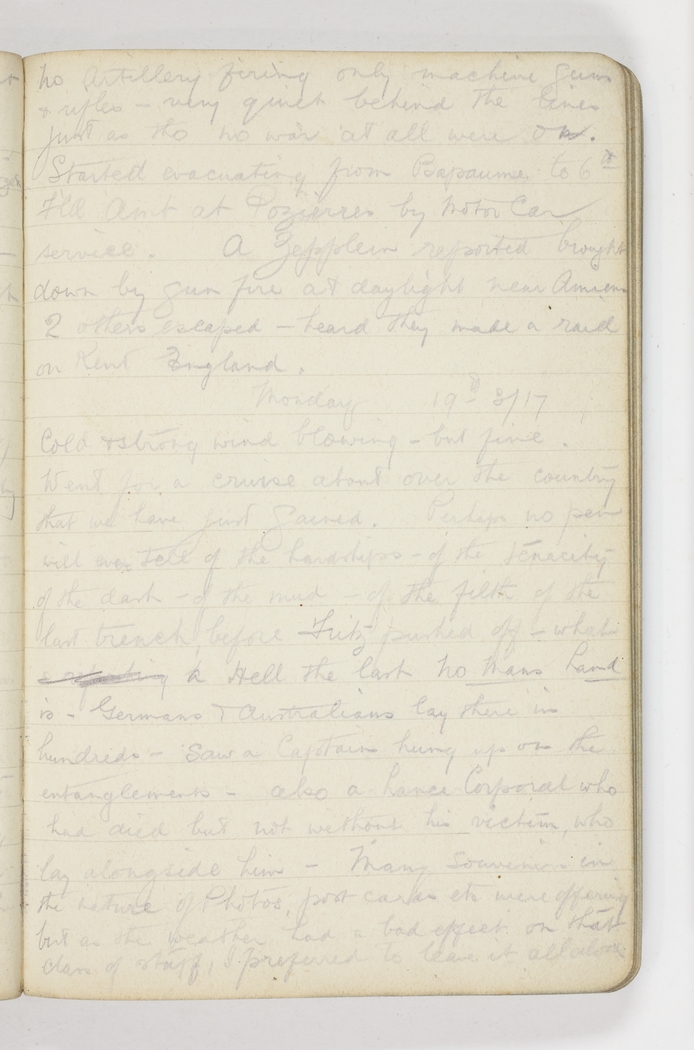 No Artillery firing only machine guns
& rifles – very quiet behind the lines
just as tho no war at all were on.
Started evacuating from Bapaume to 6th
Fld Amb at Pozierres by Motor Car
service. A Zepplein reported brought
down by gun fire at daylight near Amiens
2 others escaped – heard they made a raid
on Kent England.
Monday 19th 3/17
Cold & strong wind blowing – but fine.
Went for a cruise about over the country
that we have just gained. Perhaps no pen
will ever tell of the hardships – of the tenacity
of the dash – of the mud – of the filth of the
last trench, before Fritz pushed off – what
a Hell the last No Mans Land
is – Germans & Australians lay there in
hundreds – Saw a Captain hung up on the
entanglements – also a Lance Corporal who
had died but not without his victim, who
lay alongside him – Many Souvenirs in
the nature of Photos, post cards etc were offering
but as the weather had a bad effect on that
class of stuff, I preferred to leave it all alone